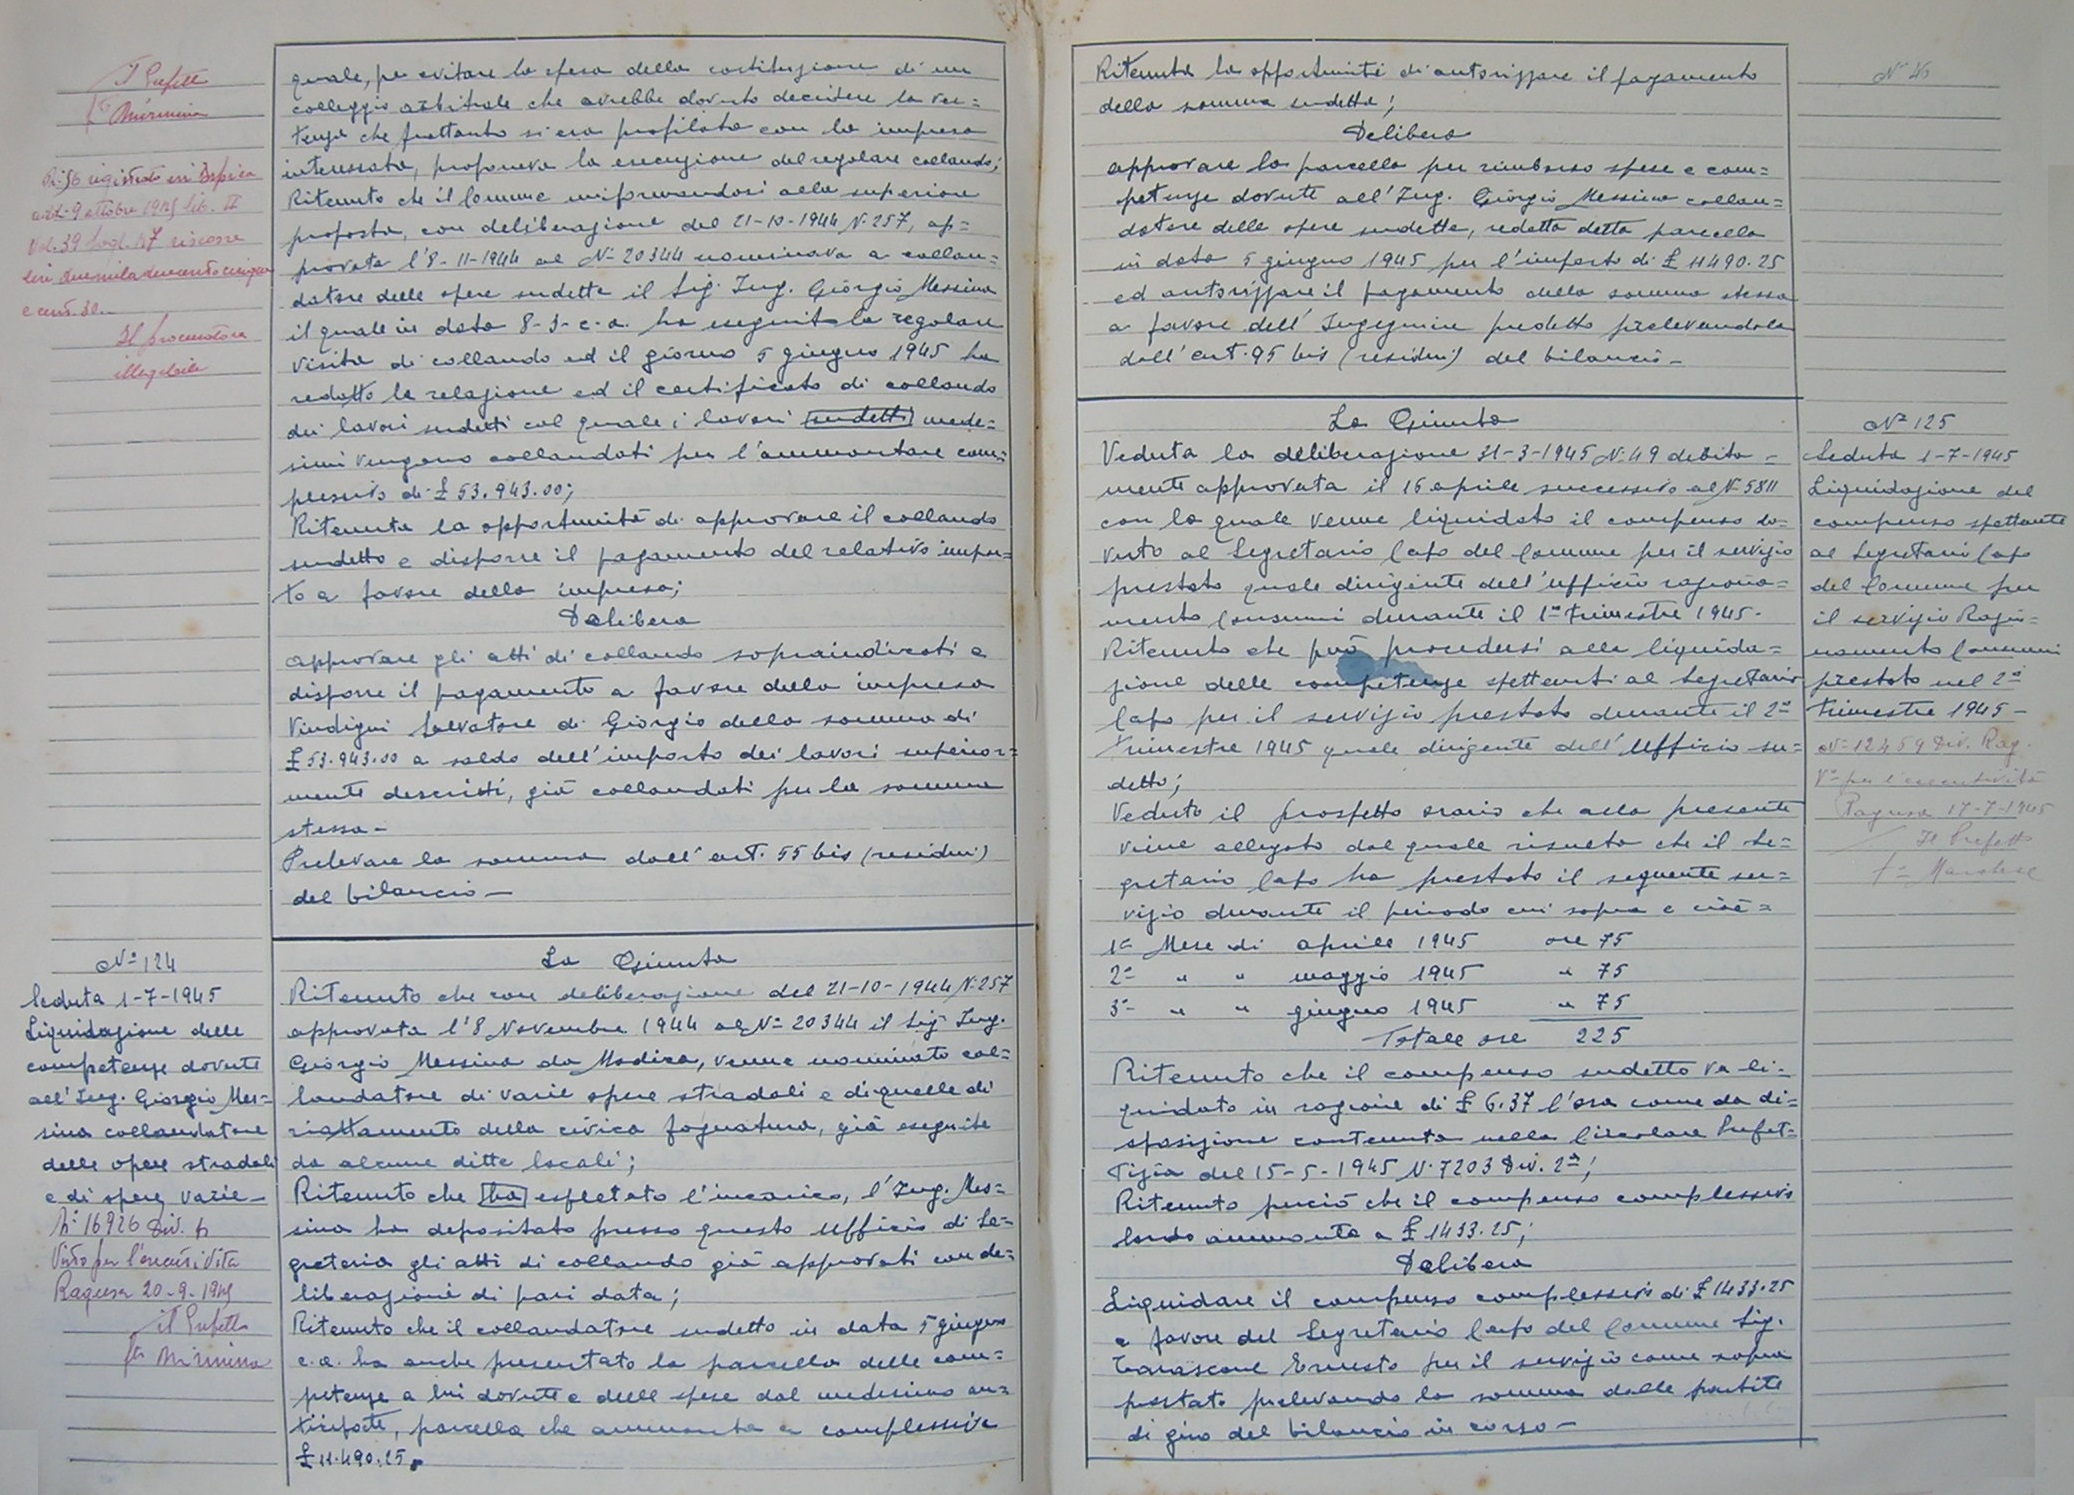 il Prefetto
fto Mirmina
N. 56 registrato in Ispica
addì 9 ottobre 1945 lib. II
Vol. 39 fogl. 47 riscosse
lire duemiladuecentocinque
e cent. 30.
Il procuratore
illegibile
quale, per evitare la spesa della costituzione di un
colleggio arbitrale che avrebbe dovuto decidere la ver=
tenza che frattanto si era profilata con la impresa
interessata, proponeva la esecuzione del regolare collaudo;
Ritenuto che il Comune uniformandosi alla superiore
proposta, con deliberazione del 21-10-1944 N. 257, ap=
provata l'8-11-1944 al N. 20344 nominava a collau=
datore delle opere sudette il Sig. Ing. Giorgio Messina
il quale in data 8-3-c.a. ha eseguito la regolare
visita di collaudo ed il giorno 5 giugno 1945 ha
redatto la relazione ed il certificato di collaudo
dei lavori sudetti col quale i lavori sudetti mede=
simi vengono collaudati per l'ammontare com=
plessivo di £ 53.943.00;
Ritenuta la opportunità di approvare il collaudo
sudetto e disporre il pagamento del relativo impor=
to a favore della impresa;
Delibera
approvare gli atti di collaudo sopraindicati e
disporre il pagamento a favore della impresa
Vindigni Salvatore di Giorgio della somma di
£ 53.943.00 a saldo dell'importo dei lavori superior=
mente descritti, già collaudati per la somma
stessa -
Prelevare la somma dall'art. 55 bis (residui)
del bilancio -
N° 124
Seduta 1-7-1945
Liquidazione delle
competenze dovute
all'Ing. Giorgio Mes=
sina collaudatore
delle opere stradali
e di opere varie -
N° 16926 Div.
Visto per l'esecutività
Ragusa 20-9-1945
il Prefetto
fto Mirmina
La Giunta
Ritenuto che con deliberazione del 21-10-1944 N. 257
approvata l'8 Novembre 1944 al N° 20344 il Sig. Ing.
Giorgio Messina da Modica, venne nominato col=
laudatore di varie opere stradali e di quelle di
riattamento della civica fognatura, già eseguite
da alcune ditte locali;
Ritenuto che ha espletato l'incarico, l'Ing. Mes=
sina ha depositato presso questo Ufficio di Se=
greteria gli atti di collaudo già approvati con de=
liberazione di pari data;
Ritenuto che il collaudatore sudetto in data 5 giugno
c.a. ha anche presentato la parcella delle com=
petenze a lui dovute e delle spese dal medesimo an=
ticipate, parcella che ammonta a complessive
£ 11.490.25.
Ritenuta la opportunità di autorizzare il pagamento
della somma sudetta;
Delibera
approvare la parcella per rimborso spese e com=
petenze dovute all'Ing. Giorgio Messina collau=
datore delle opere sudette, redatta detta parcella
in data 5 giugno 1945 per l'importo di £ 11490.25
ed autorizzare il pagamento della somma stessa
a favore dell'Ingegnere predetto prelevandola
dall'art. 95 bis (residui) del bilancio -
La Giunta
Veduta la deliberazione 31-3-1945 N. 49 debita=
mente approvata il 16 aprile successivo al N. 5811
con la quale venne liquidato il compenso do=
vuto al Segretario Capo del Comune per il servizio
prestato quale dirigente dell'ufficio raziona=
mento Consumi durante il 1° trimestre 1945.
Ritenuto che può procedersi alla liquida=
zione delle competenze spettanti al Segretario
Capo per il servizio prestato durante il 2°
trimestre 1945 quale dirigente dell'Ufficio su=
detto;
Veduto il prospetto orario che alla presente
viene allegato dal quale risulta che il Se=
gretario Capo ha prestato il seguente ser=
vizio durante il periodo cui sopra e cioè=
1° Mese di aprile 1945 ore 75
2° " " maggio 1945 " 75
3° " " giugno 1945 " 75
Totale ore 225
Ritenuto che il compenso sudetto va li=
quidato in ragione di £ 6.37 l'ora come da di=
sposizione contenuta nella Circolare Prefet=
tizia del 15-5-1945 N. 7203 Div. 2ª;
Ritenuto perciò che il compenso complessivo
lordo ammonta a £ 1433.25;
Delibera
Liquidare il compenso complessivo di £ 1433.25
a favore del Segretario Capo del Comune Sig.
Tarascone Ernesto per il servizio come sopra
prestato prelevando la somma dalle partite
di giro del bilancio in corso -
N° 125
Seduta 1-7-1945
Liquidazione del
compenso spettante
al Segretario Capo
del Comune per
il servizio Razio=
namento Consumi
prestato nel 2°
trimestre 1945 -
N° 12459 Div. Rag.
V° per l'esecutività
Ragusa 17-7-1945
Il Prefetto
fto